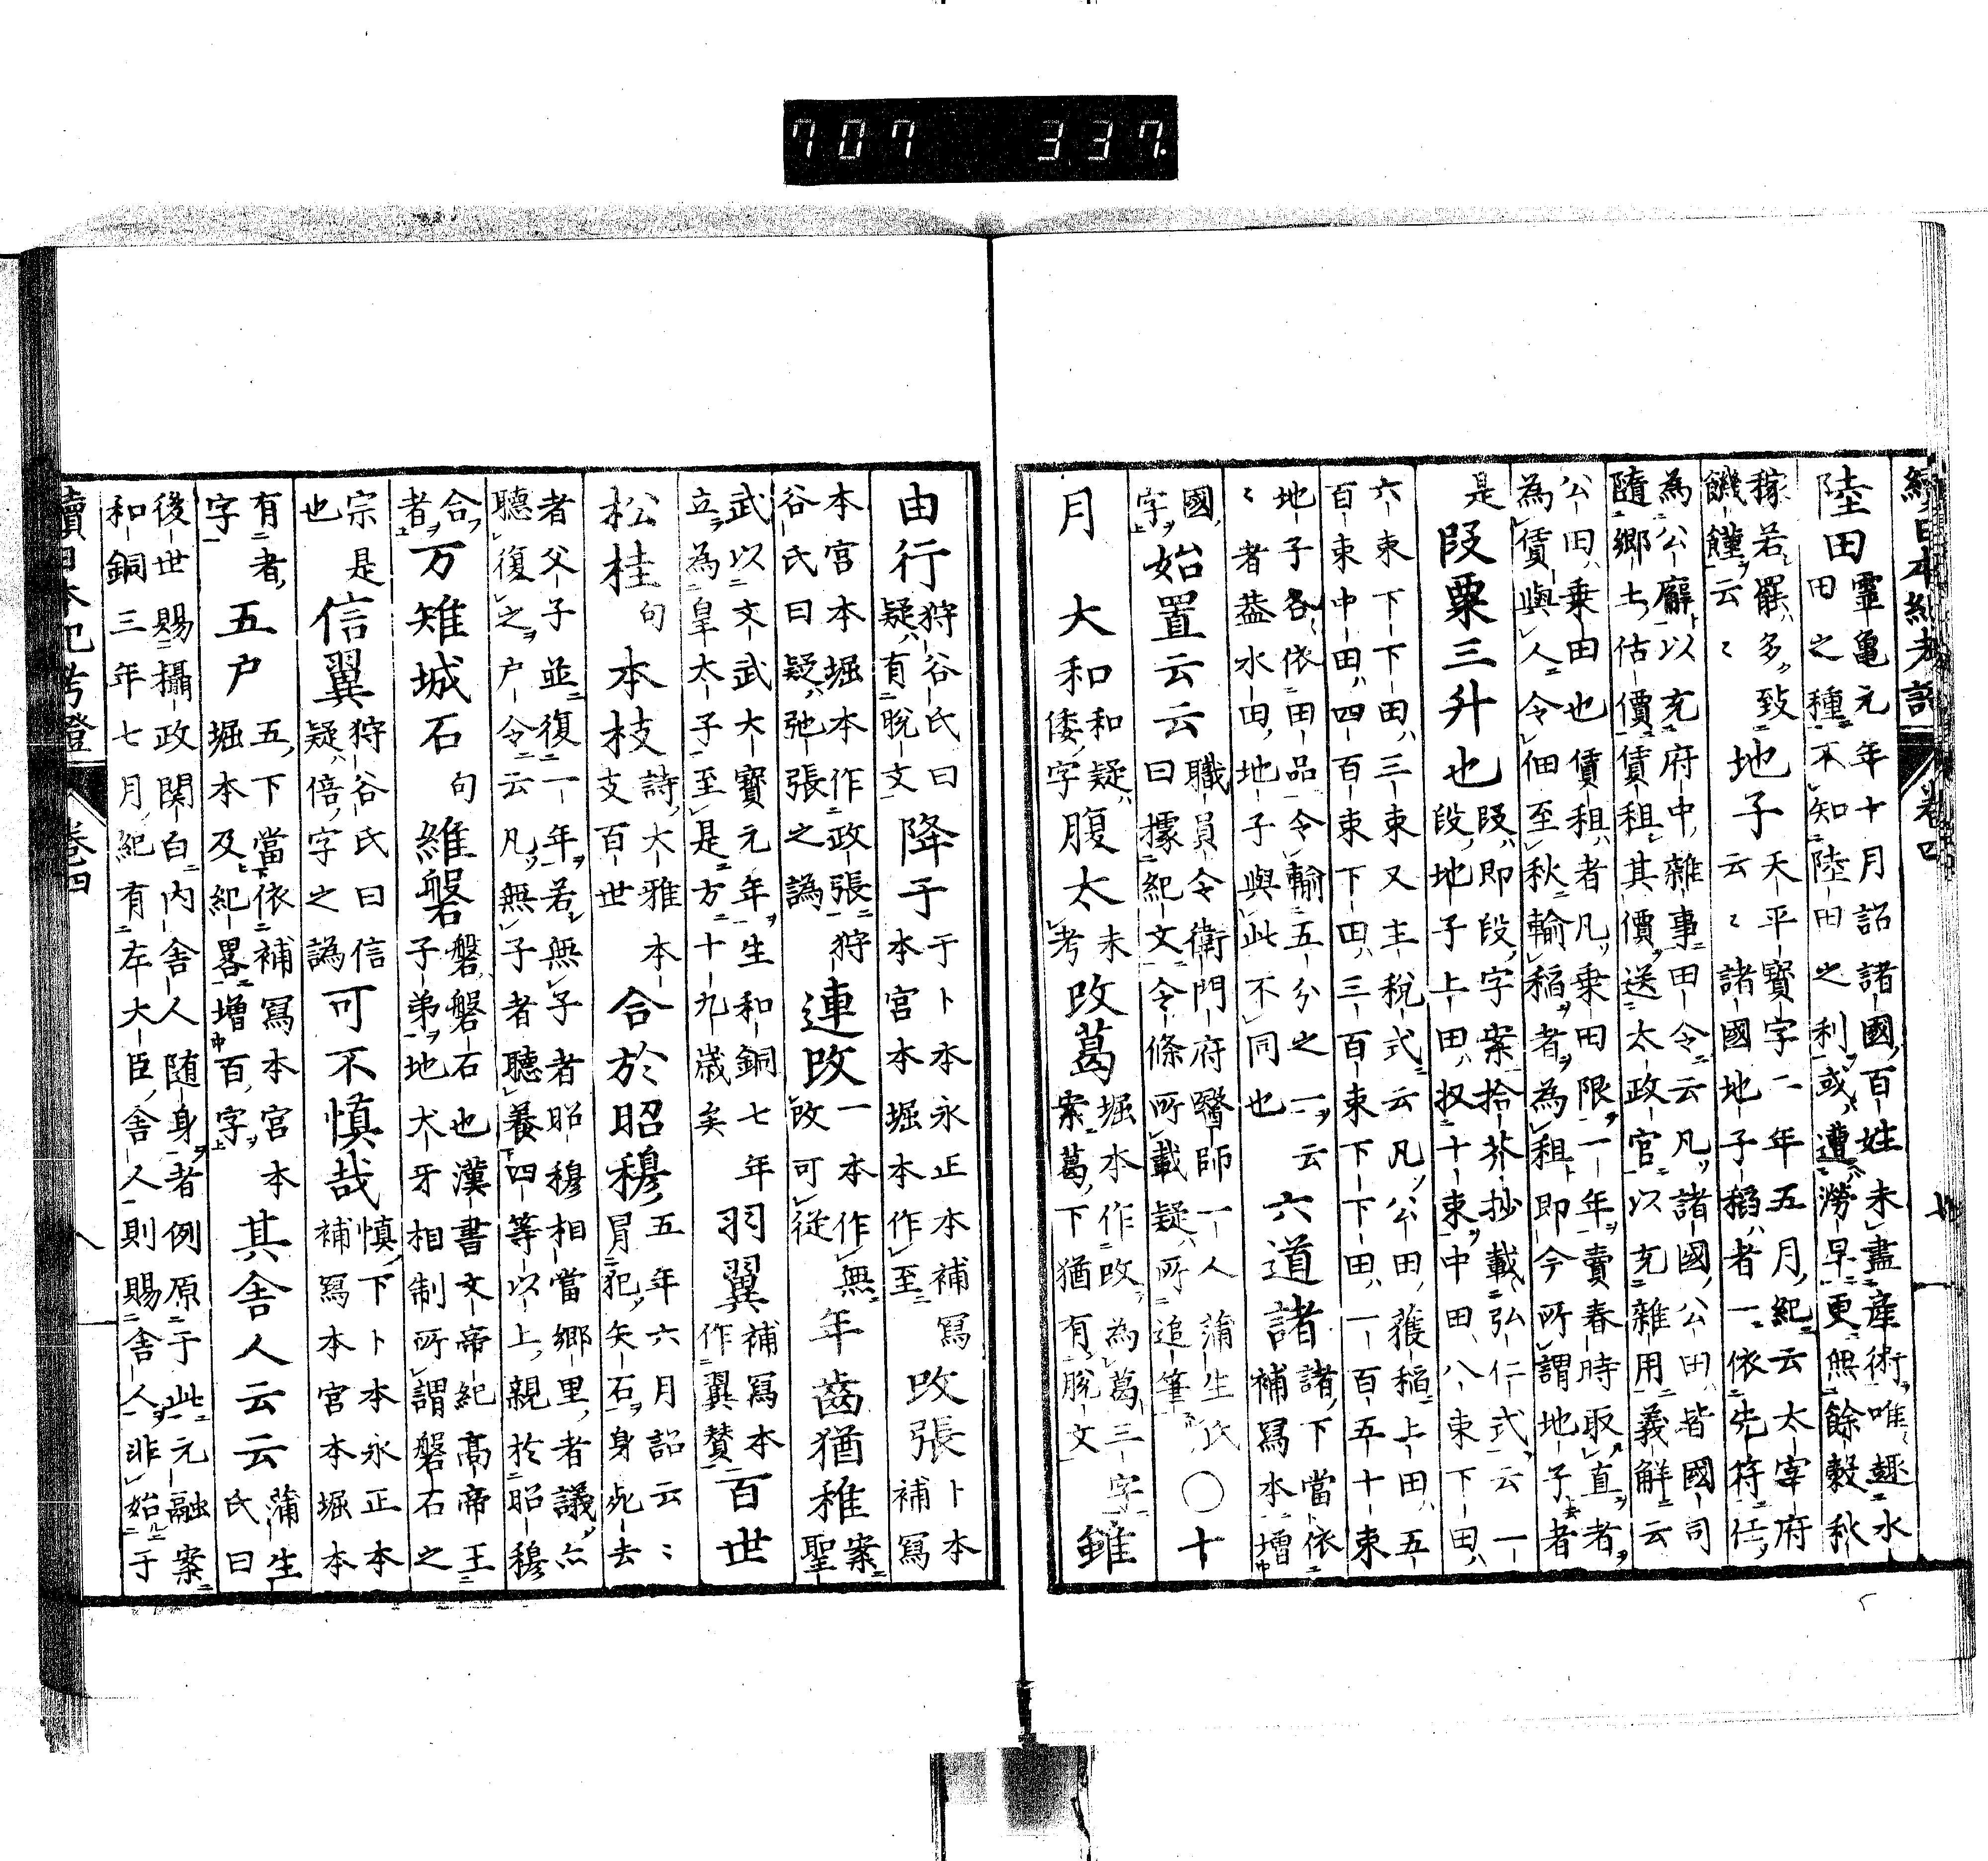 707 337
續日本紀考證 卷四
陸田 靈亀元年十月詔諸國百姓未盡産術唯趣水
田之種不知陸田之利或遭澇旱更無餘穀秋
稼若罷多致
饑饉云〻 地子 天平寶字二年五月紀云太宰府
云〻諸國地子稻者一依先符任
為公廨以充府中雜事田令云凡諸國公田皆國司
随郷土估價賃租其價送太政官以充雜用義解云
公田乗田也賃租者凡乗田限一年賣春時取直者
為賃與人令佃至秋輸稻者為租即今所謂地子者
是 段粟三升也 段即段字案拾芥抄載弘仁式云一
段地子上田扠十束中田八束下田
六束下下田三束又主税式云凡公田獲稻上田五
百束中田四百束下田三百束下下田一百五十束
地子各依田品令輸五分之一云
〻者葢水田地子與此不同也 六道諸 諸下當依
補寫本增
國
字 始置云云 職員令衛門府醫師一人蒲生氏
曰據紀文令條所載疑所追筆 ○十
月 大和 和疑
倭字 腹太 未
考 改葛 堀本作改為葛三字
案葛下猶有脱文 雖
由行 狩谷氏曰
疑有脱文 降于 于卜本永正本補寫
本宮本堀本作至 改張 卜本
補寫
本宮本堀本作政張狩
谷氏曰疑弛張之譌 連改 一本作無
改可從 年齒猶稚 案
聖
武以文武大寶元年生和銅七年
立為皇太子至是方十九歳矣 羽翼 補寫本
作翼賛 百世
松桂 句 本枝 詩大雅本
支百世 合於昭穆 五年六月詔云〻
冐犯矢石身死去
者父子並復一年若無子者昭穆相當郷里者議亦
聽復之户令云凡無子者聽養四等以上親於昭穆
合
者 万雉城石 句 維磐 磐磐石也漢書文帝紀髙帝王
子弟地犬牙相制所謂磐石之
宗是
也 信翼 狩谷氏曰信
疑倍字之譌 可不慎哉 慎下卜本永正本
補寫本宮本堀本
有者
字 五户 五下當依補寫本宮本
堀本及紀畧增百字 其舎人云云 蒲生
氏曰
後世賜攝政関白内舎人随身者例原于此元融案
和銅三年七月紀有左大臣舎人則賜舎人非始于
續日本紀考證 卷四 八